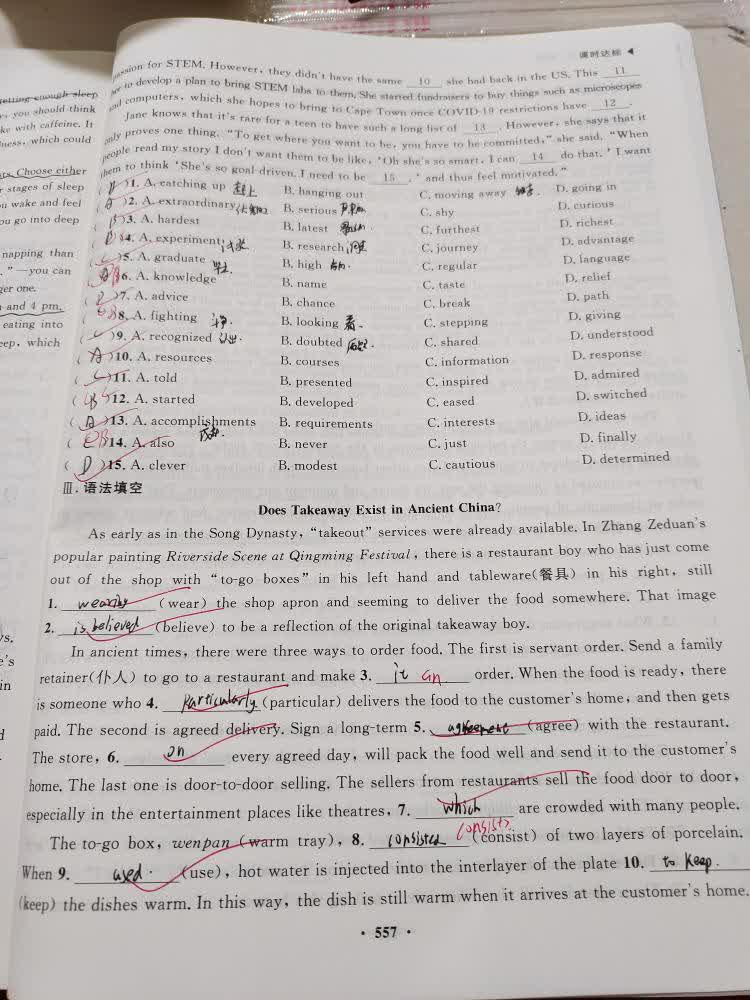 getting enough sleep
, you should think
ke with caffeine. It
ness, which could
ts. Choose either
r stages of sleep
u wake and feel
ou go into deep
napping than
."—you can
ger one.
and 4 pm,
eating into
eep, which
课时达标
passion for STEM. However, they didn't have the same 10 she had back in the US. This 11
her to develop a plan to bring STEM labs to them. She started fundraisers to buy things such as microscopes
and computers, which she hopes to bring to Cape Town once COVID-19 restrictions have 12 .
Jane knows that it's rare for a teen to have such a long list of 13 . However, she says that it
only proves one thing. "To get where you want to be, you have to be committed," she said. "When
people read my story I don't want them to be like, 'Oh she's so smart, I can 14 do that.' I want
them to think 'She's so goal-driven. I need to be 15 ,' and thus feel motivated."
( B )1. A. catching up 赶上 B. hanging out C. moving away D. going in
( A )2. A. extraordinary B. serious C. shy D. curious
( B )3. A. hardest B. latest C. furthest D. richest
( D )4. A. experiment B. research C. journey D. advantage
( C )5. A. graduate B. high C. regular D. language
( B )6. A. knowledge B. name C. taste D. relief
( D )7. A. advice B. chance C. break D. path
( B )8. A. fighting B. looking 看. C. stepping D. giving
( C )9. A. recognized 认出. B. doubted C. shared D. understood
( A )10. A. resources B. courses C. information D. response
( C )11. A. told B. presented C. inspired D. admired
( C )12. A. started B. developed C. eased D. switched
( A )13. A. accomplishments B. requirements C. interests D. ideas
( B )14. A. also 成就. B. never C. just D. finally
( D )15. A. clever B. modest C. cautious D. determined
Ⅲ. 语法填空
Does Takeaway Exist in Ancient China?
As early as in the Song Dynasty, "takeout" services were already available. In Zhang Zeduan's
popular painting Riverside Scene at Qingming Festival, there is a restaurant boy who has just come
out of the shop with "to-go boxes" in his left hand and tableware(餐具) in his right, still
1. wearing (wear) the shop apron and seeming to deliver the food somewhere. That image
2. is believed (believe) to be a reflection of the original takeaway boy.
In ancient times, there were three ways to order food. The first is servant order. Send a family
retainer(仆人) to go to a restaurant and make 3. it an order. When the food is ready, there
is someone who 4. particularly (particular) delivers the food to the customer's home, and then gets
paid. The second is agreed delivery. Sign a long-term 5. agreement (agree) with the restaurant.
The store, 6. on every agreed day, will pack the food well and send it to the customer's
home. The last one is door-to-door selling. The sellers from restaurants sell the food door to door,
especially in the entertainment places like theatres, 7. which are crowded with many people.
The to-go box, wenpan (warm tray), 8. consisted consists (consist) of two layers of porcelain.
When 9. used. (use), hot water is injected into the interlayer of the plate 10. to keep.
(keep) the dishes warm. In this way, the dish is still warm when it arrives at the customer's home.
· 557 ·